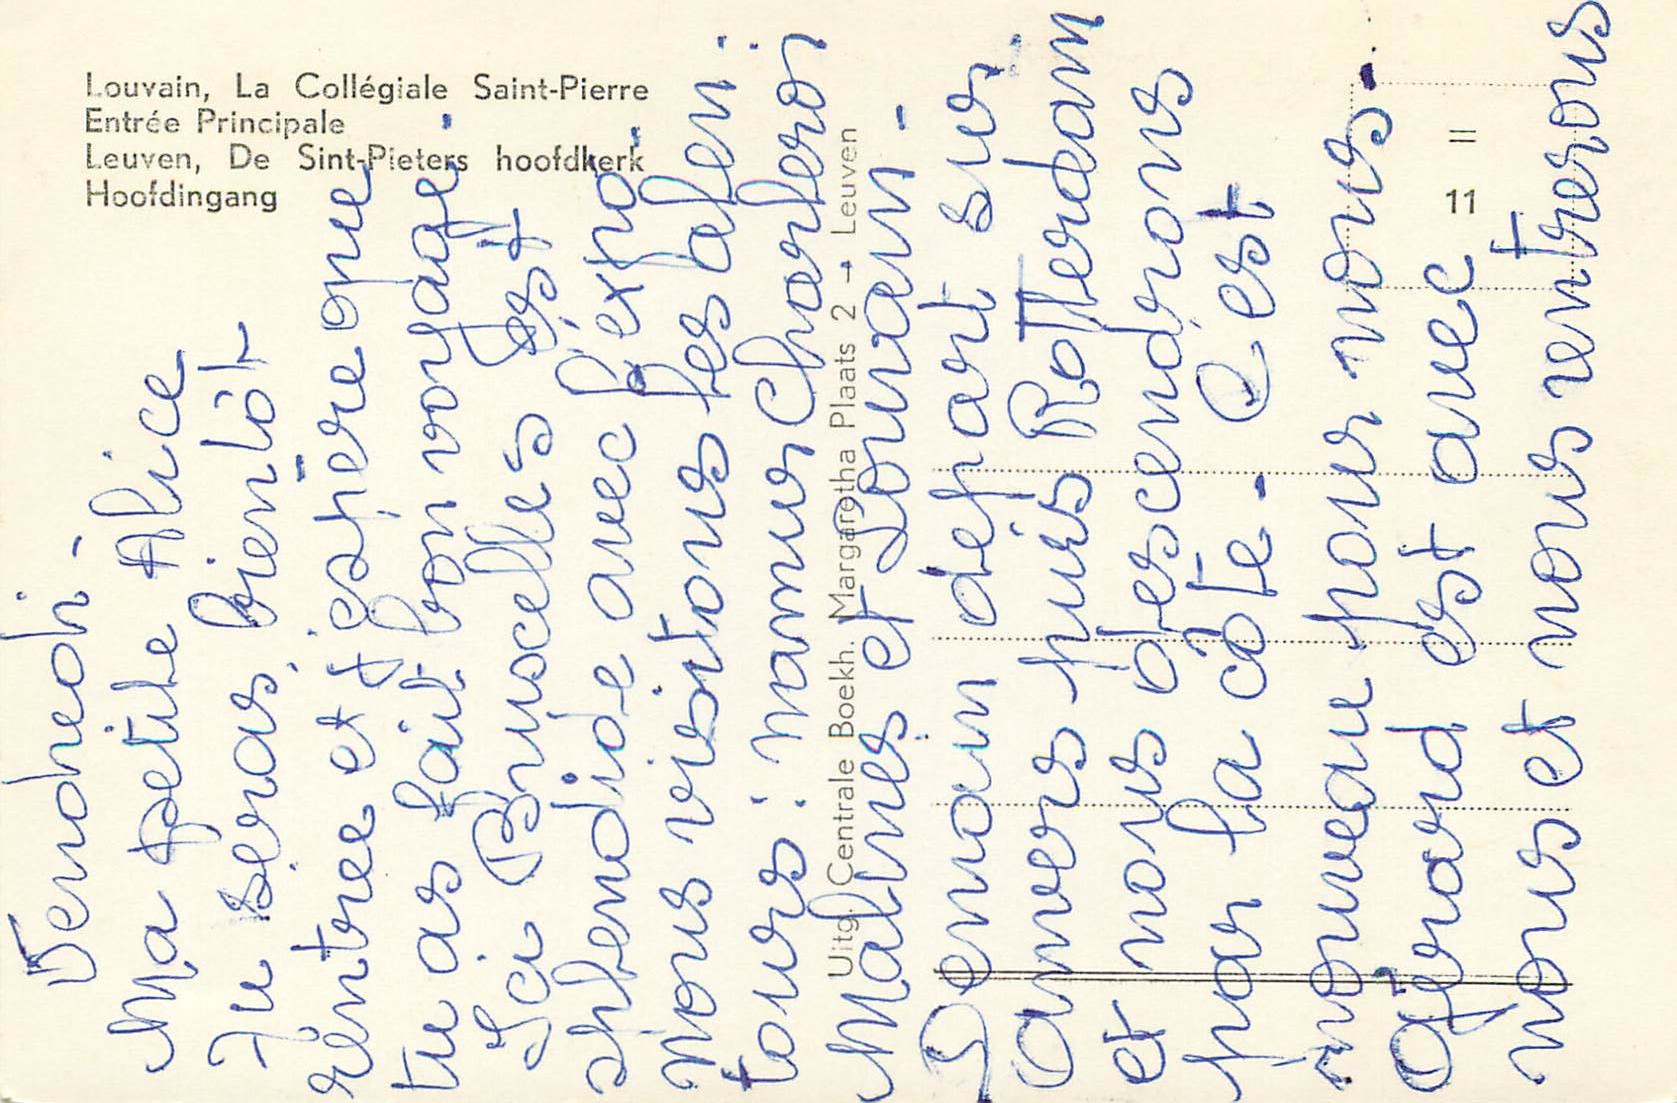 Louvain, La Collégiale Saint-Pierre
Entrée Principale
Leuven, De Sint-Pieters hoofdkerk
Hoofdingang
=
11
Uitg. Centrale Boekh. Margaretha Plaats 2 - Leuven
Vendredi -
Ma petite Alice
Tu seras bientôt
rentrée et j'espère que
tu as fait bon voyage.
Ici Bruxelles est
splendide avec l'expo.
Nous visitons les alen-
tours : Namur Charleroi
Malines et Louvain -
Demain depart sur
Anvers puis Rotterdam
et nous descendrons
par la côte - C'est
nouveau pour nous.
Gérard est avec
nous et nous rentrerons